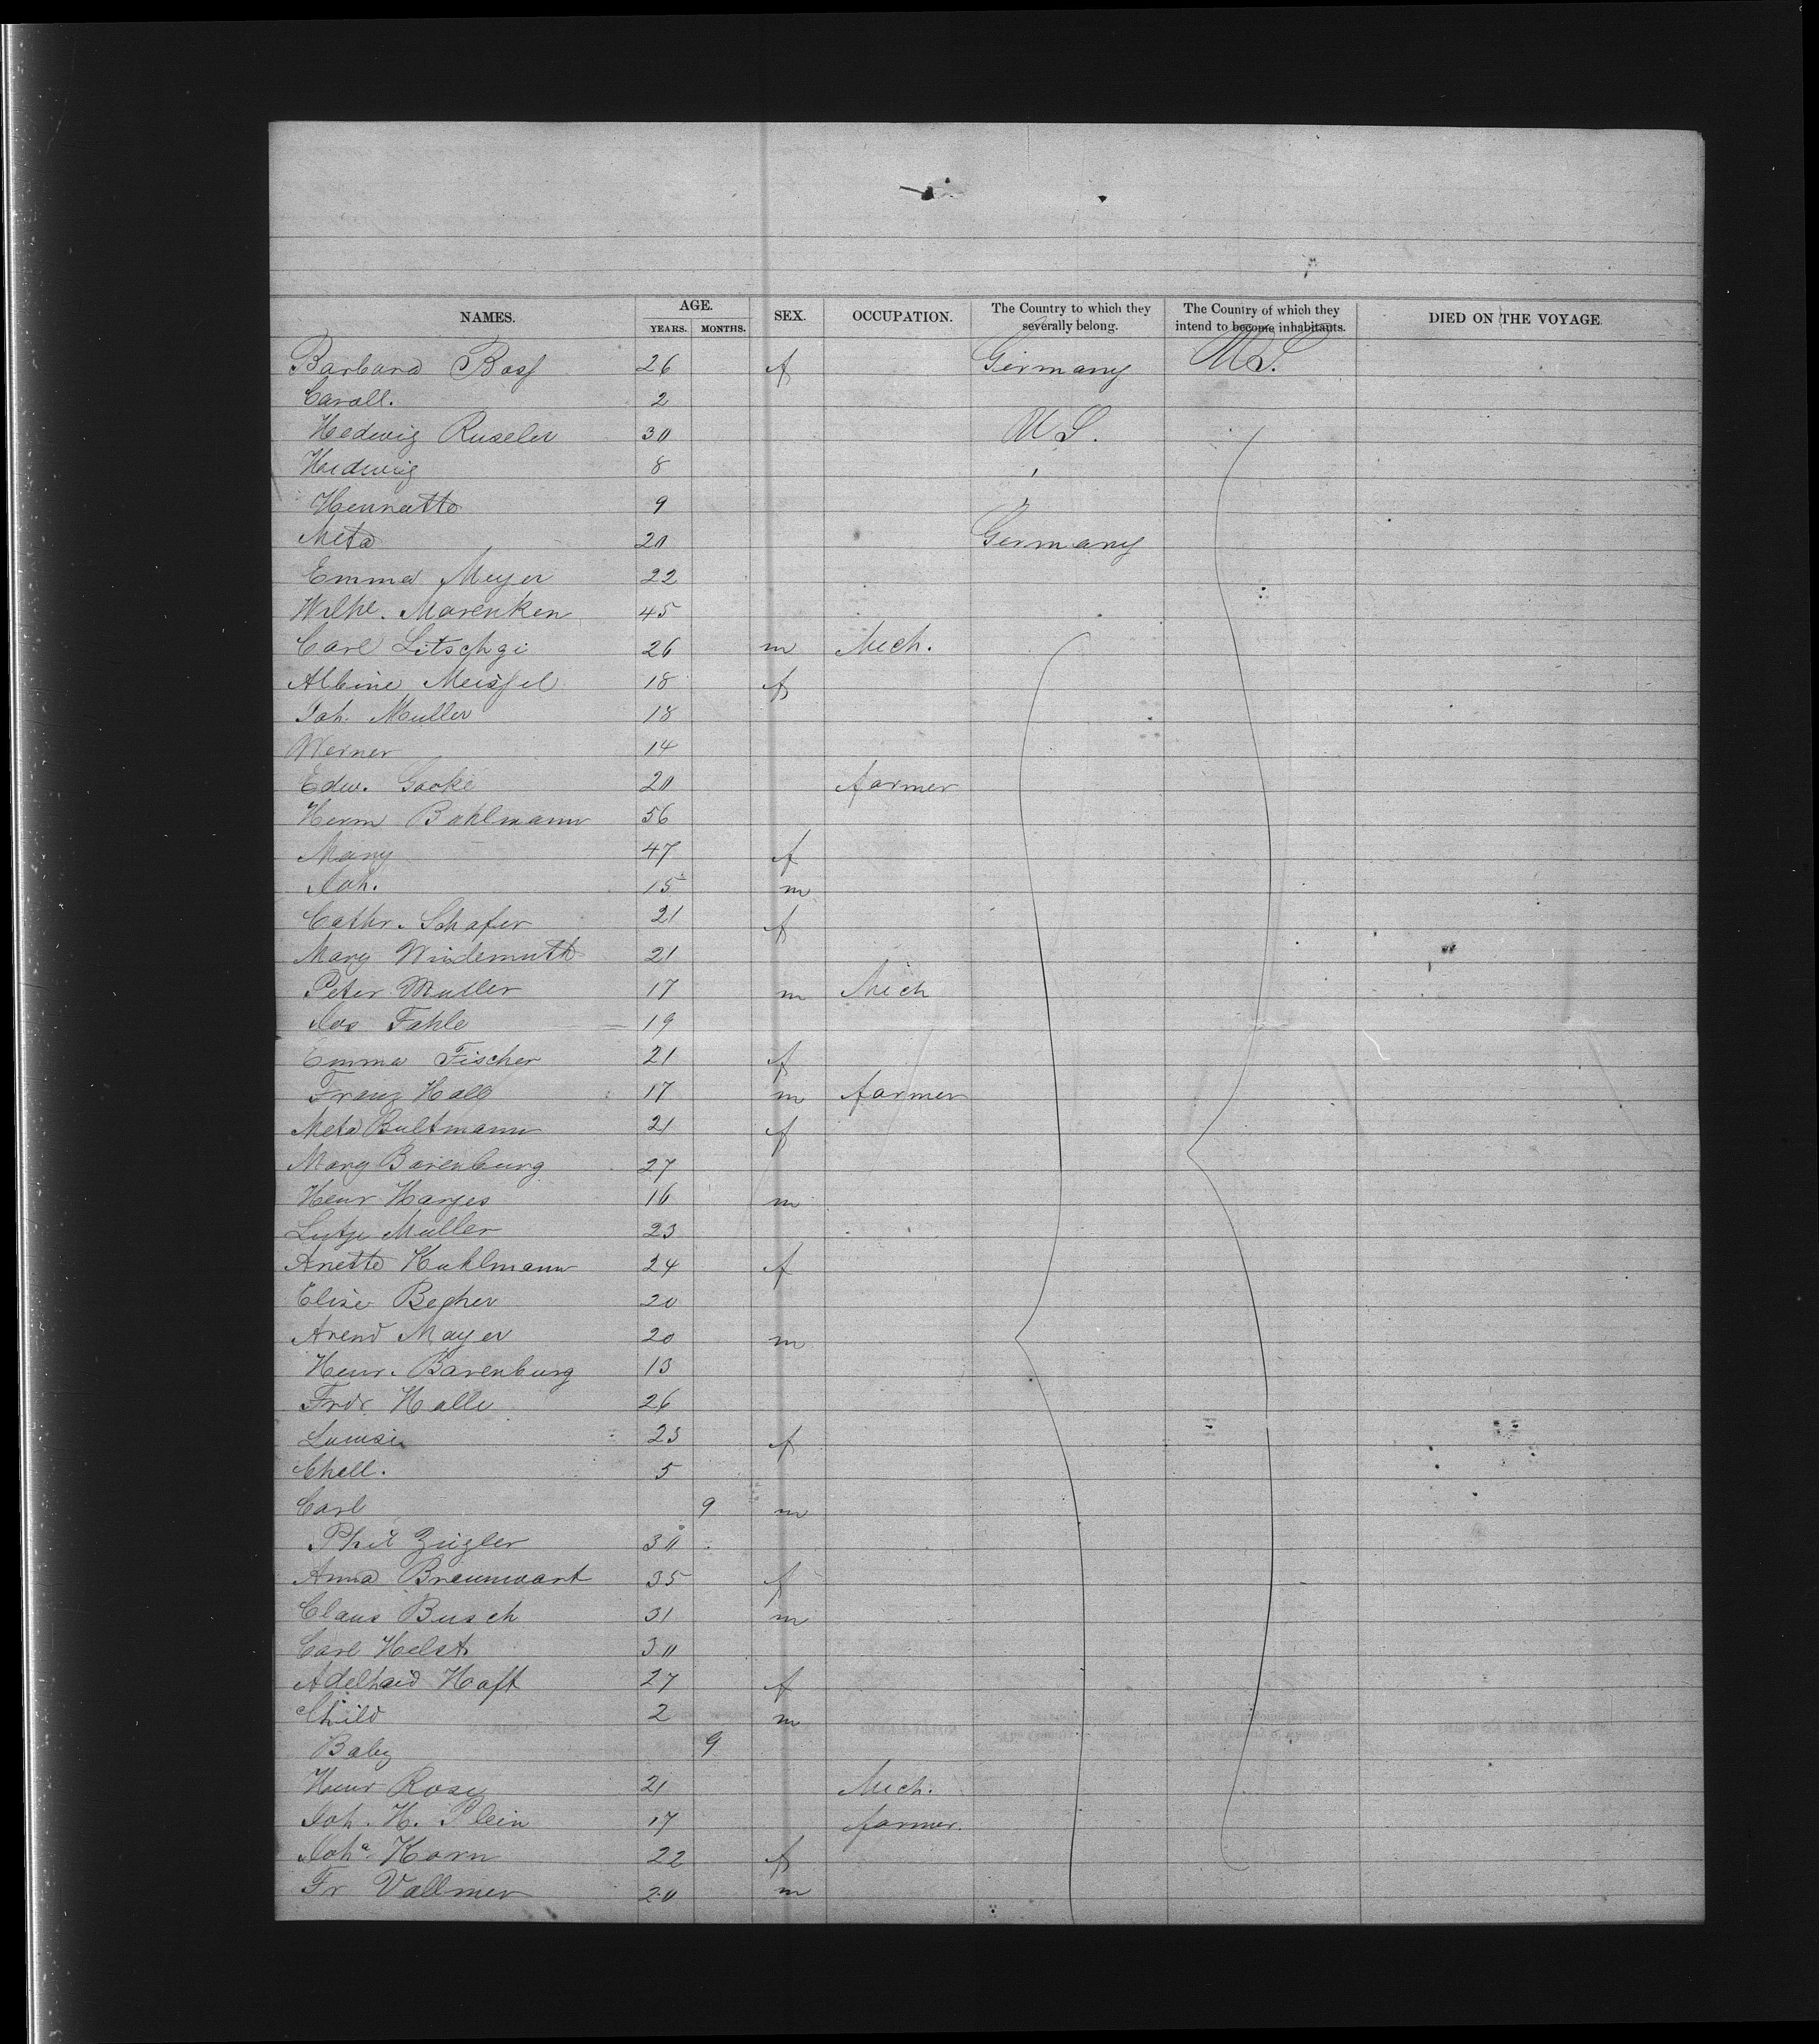 NAMES. AGE. SEX. OCCUPATION. The Country to which they severally belong. The Country of which they intend to become inhabitants. DIED ON THE VOYAGE
YEARS. MONTHS.
Barbara Bass 26 f Germany U.S.
Caroll. 2
Hedwig Ruseler 30 U.S.
Hedwig 8 "
Hennatte 9 "
Meta 20 Germany
Emma Meyer 22
Wilhe. Marenken 45
Carl Litschgi 26 m Mech.
Albine Meissel 18 f
Joh. Muller 18
Werner 14
Edw. Gooke 20 farmer
Herm Bahlmann 56
Mary 47 f
Joh. 15 m
Cathr. Schafer 21 f
Mary Windemuth 21
Peter Muller 17 m Mech
Jos Fahle 19
Emma Fischer 21 f
Franz Hall 17 m farmer
Meta Bultmann 21 f
Mary Barenburg 27
Henr Harjes 16 m
Lutje Muller 23
Anette Kuhlmann 24 f
Elise Becher 20
Arend Mayer 20 m
Henr. Barenburg 13
Frdr. Halle 26
Louise 23 f
Chell. 5
Carl 9 m
Phil Zugler 30
Anna Braunwart 35 f
Claus Busch 31 m
Carl Helst 30
Adelhaid Haft 27 f
Child 2 m
Baby 9
Henr Rosy 21 Mech.
Joh. H. Plein 17 farmer.
Joha Korn 22 f
Fr Vollmer 20 m